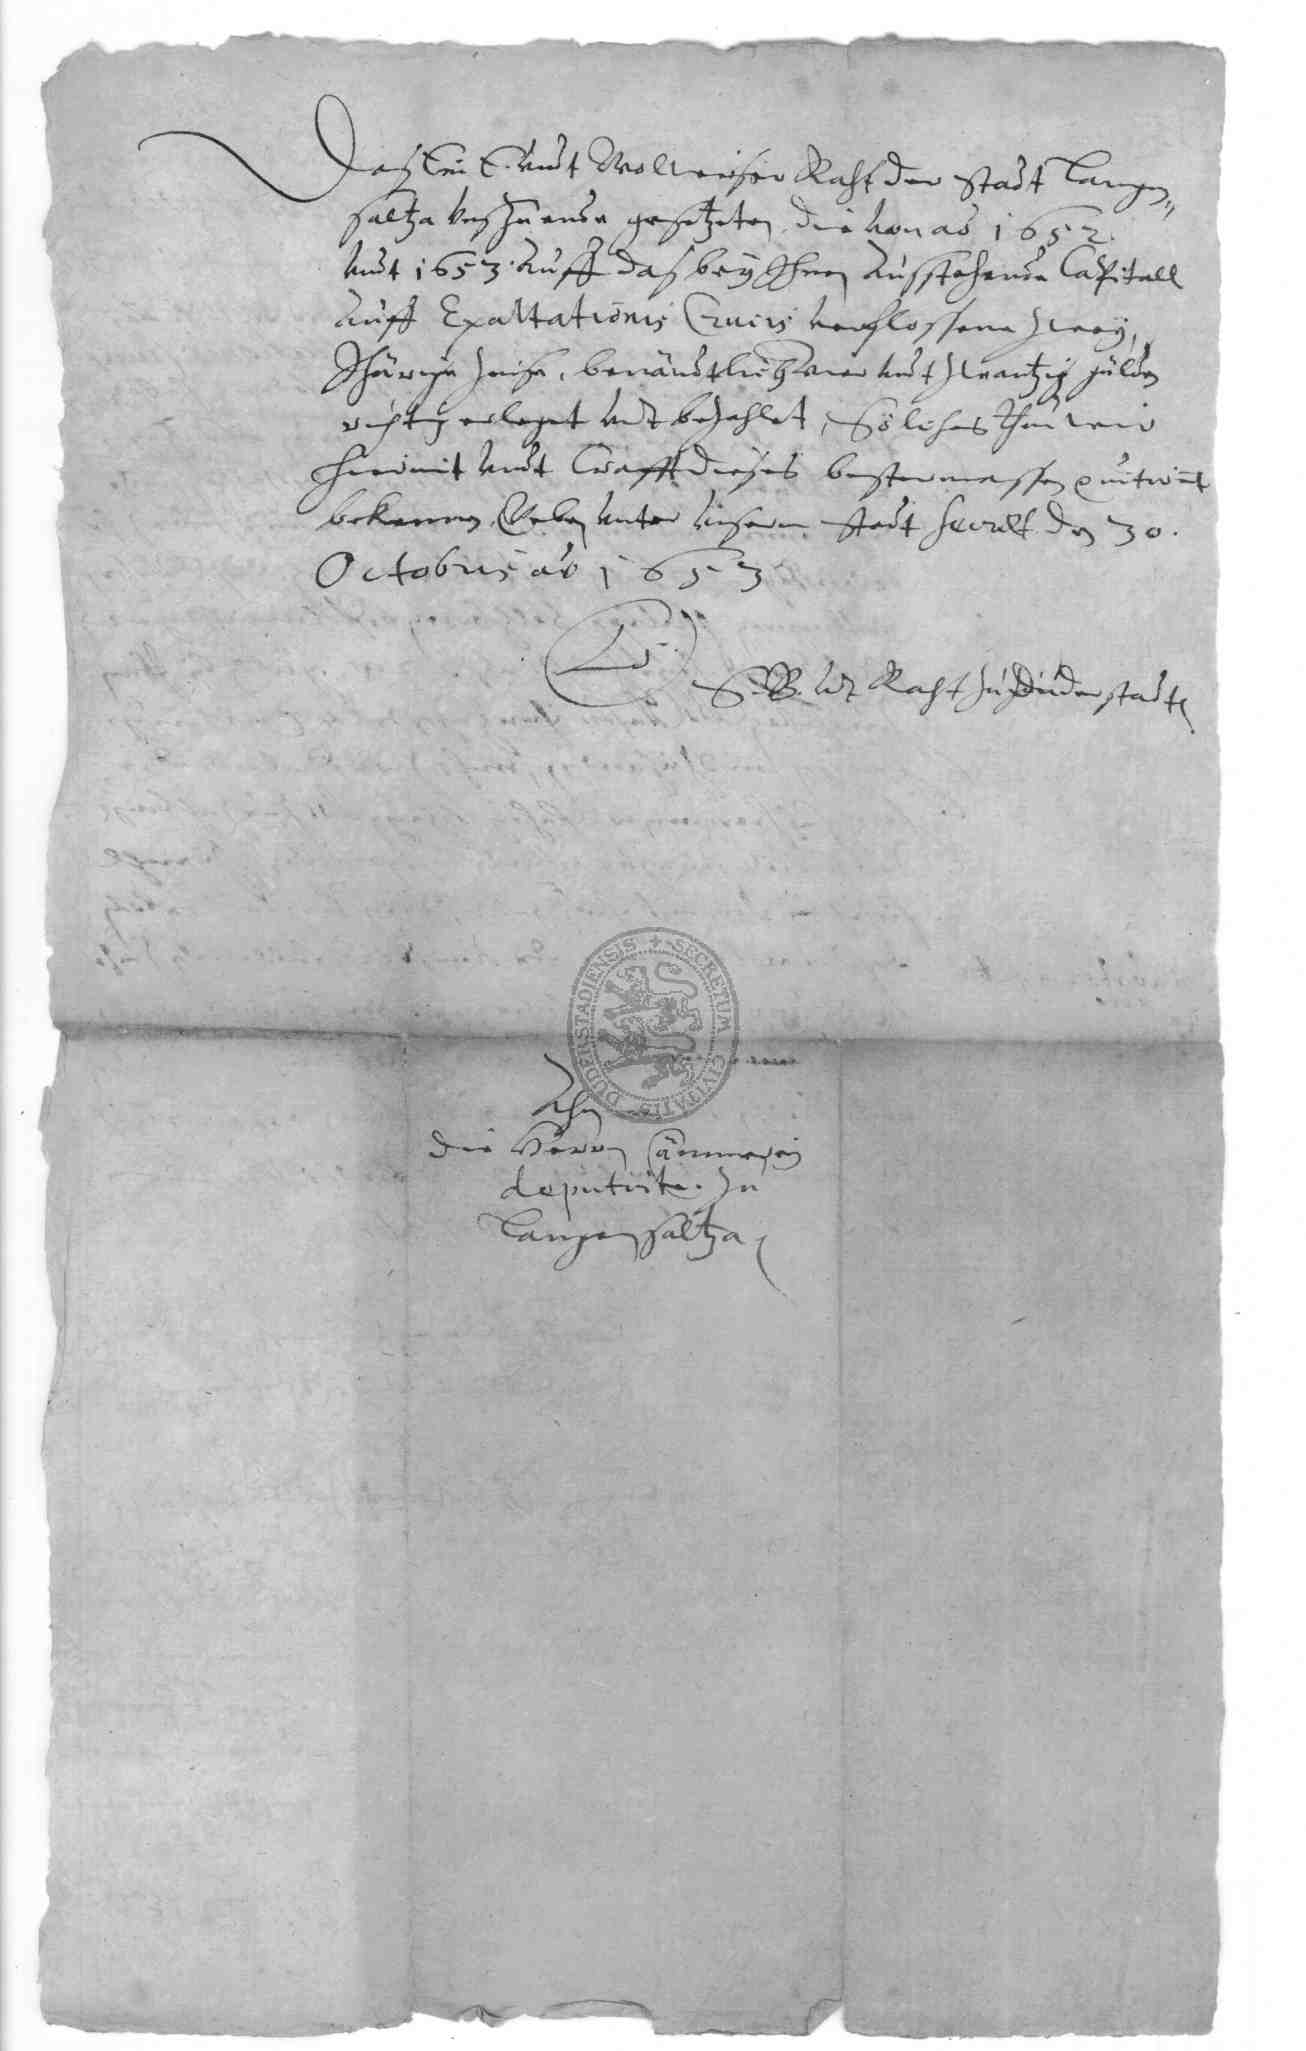 Daß Ein E. undt Wollweiser Raht der Stadt Langen„
saltza uns zu ende gesetzeten die von ao 1652.
undt 1653. auff daß bey Ihnen ausstehende Capitall
auff Exaltationis Crucis verflossene zwey,
Jhärige Zinse, benändtlich vier undt zwantzig gülden
richtig erleget undt bezahlet, Solches thun wir
hiermit undt Crafft dieses bestermassen quitirent
bekennen, Geben unter unserm Stadt Secrett den 30.
Octobris ao 1653
LS.
B. undt Raht zu Duderstadt
SECRETUM CIVITATIS DUDERSTADIENSIS
Ahn
die Herrn Cämmerey
deputirte. zu
Langensaltza